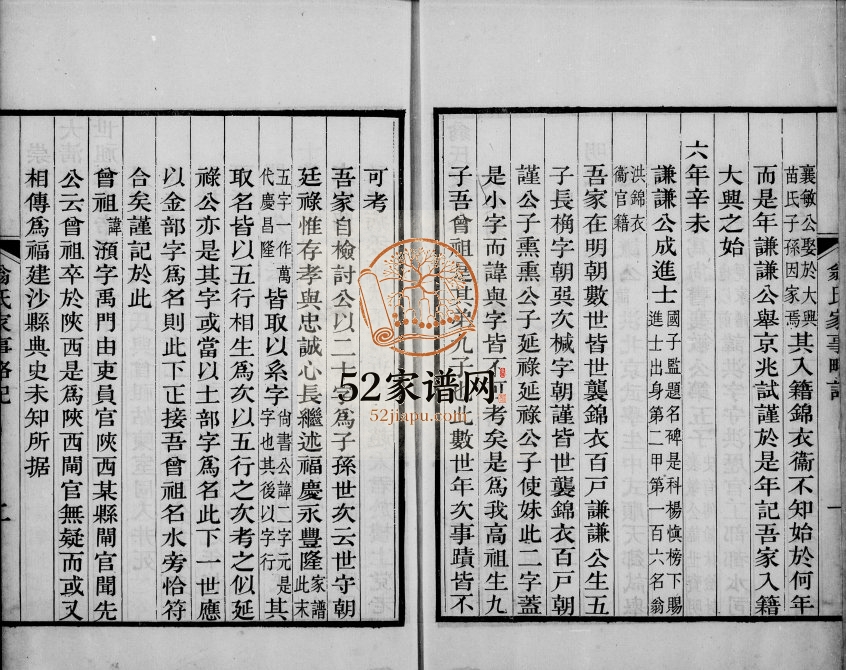 翁氏家事略記
一
襄敏公娶於大興
苗氏子孫因家焉
其入籍錦衣衞不知始於何年
而是年謙謙公舉京兆試謹於是年記吾家入籍
大興之始
六年辛未
謙謙公成進士
國子監題名碑是科楊慎榜下賜
進士出身第二甲第一百六名翁
洪錦衣
衞官籍
吾家在明朝數世皆世襲錦衣百戸謙謙公生五
子長桷字朝巽次椷字朝謹皆世襲錦衣百戸朝
謹公子熏熏公子延祿延祿公子使妹此二字蓋
是小字而諱與字皆不可考矣是爲我高祖生九
子吾曾祖是其弟九子也此數世年次事蹟皆不
可考
吾家自檢討公以二十字爲子孫世次云世守朝
廷祿惟存孝與忠誠心長繼述福慶永豐隆
家譜
此末
五字一作萬
代慶昌隆
皆取以系字
尙書公諱二字元是
字也其後以字行
其
取名皆以五行相生爲次以五行之次考之似延
祿公亦是其字或當以土部字爲名此下一世應
以金部字爲名則此下正接吾曾祖名水旁恰符
合矣謹記於此
曾祖諱澦字禹門由吏員官陜西某縣閘官聞先
公云曾祖卒於陜西是爲陜西閘官無疑而或又
相傳爲福建沙縣典史未知所据
翁氏家事略記
二
52家谱网
52jiapu.com